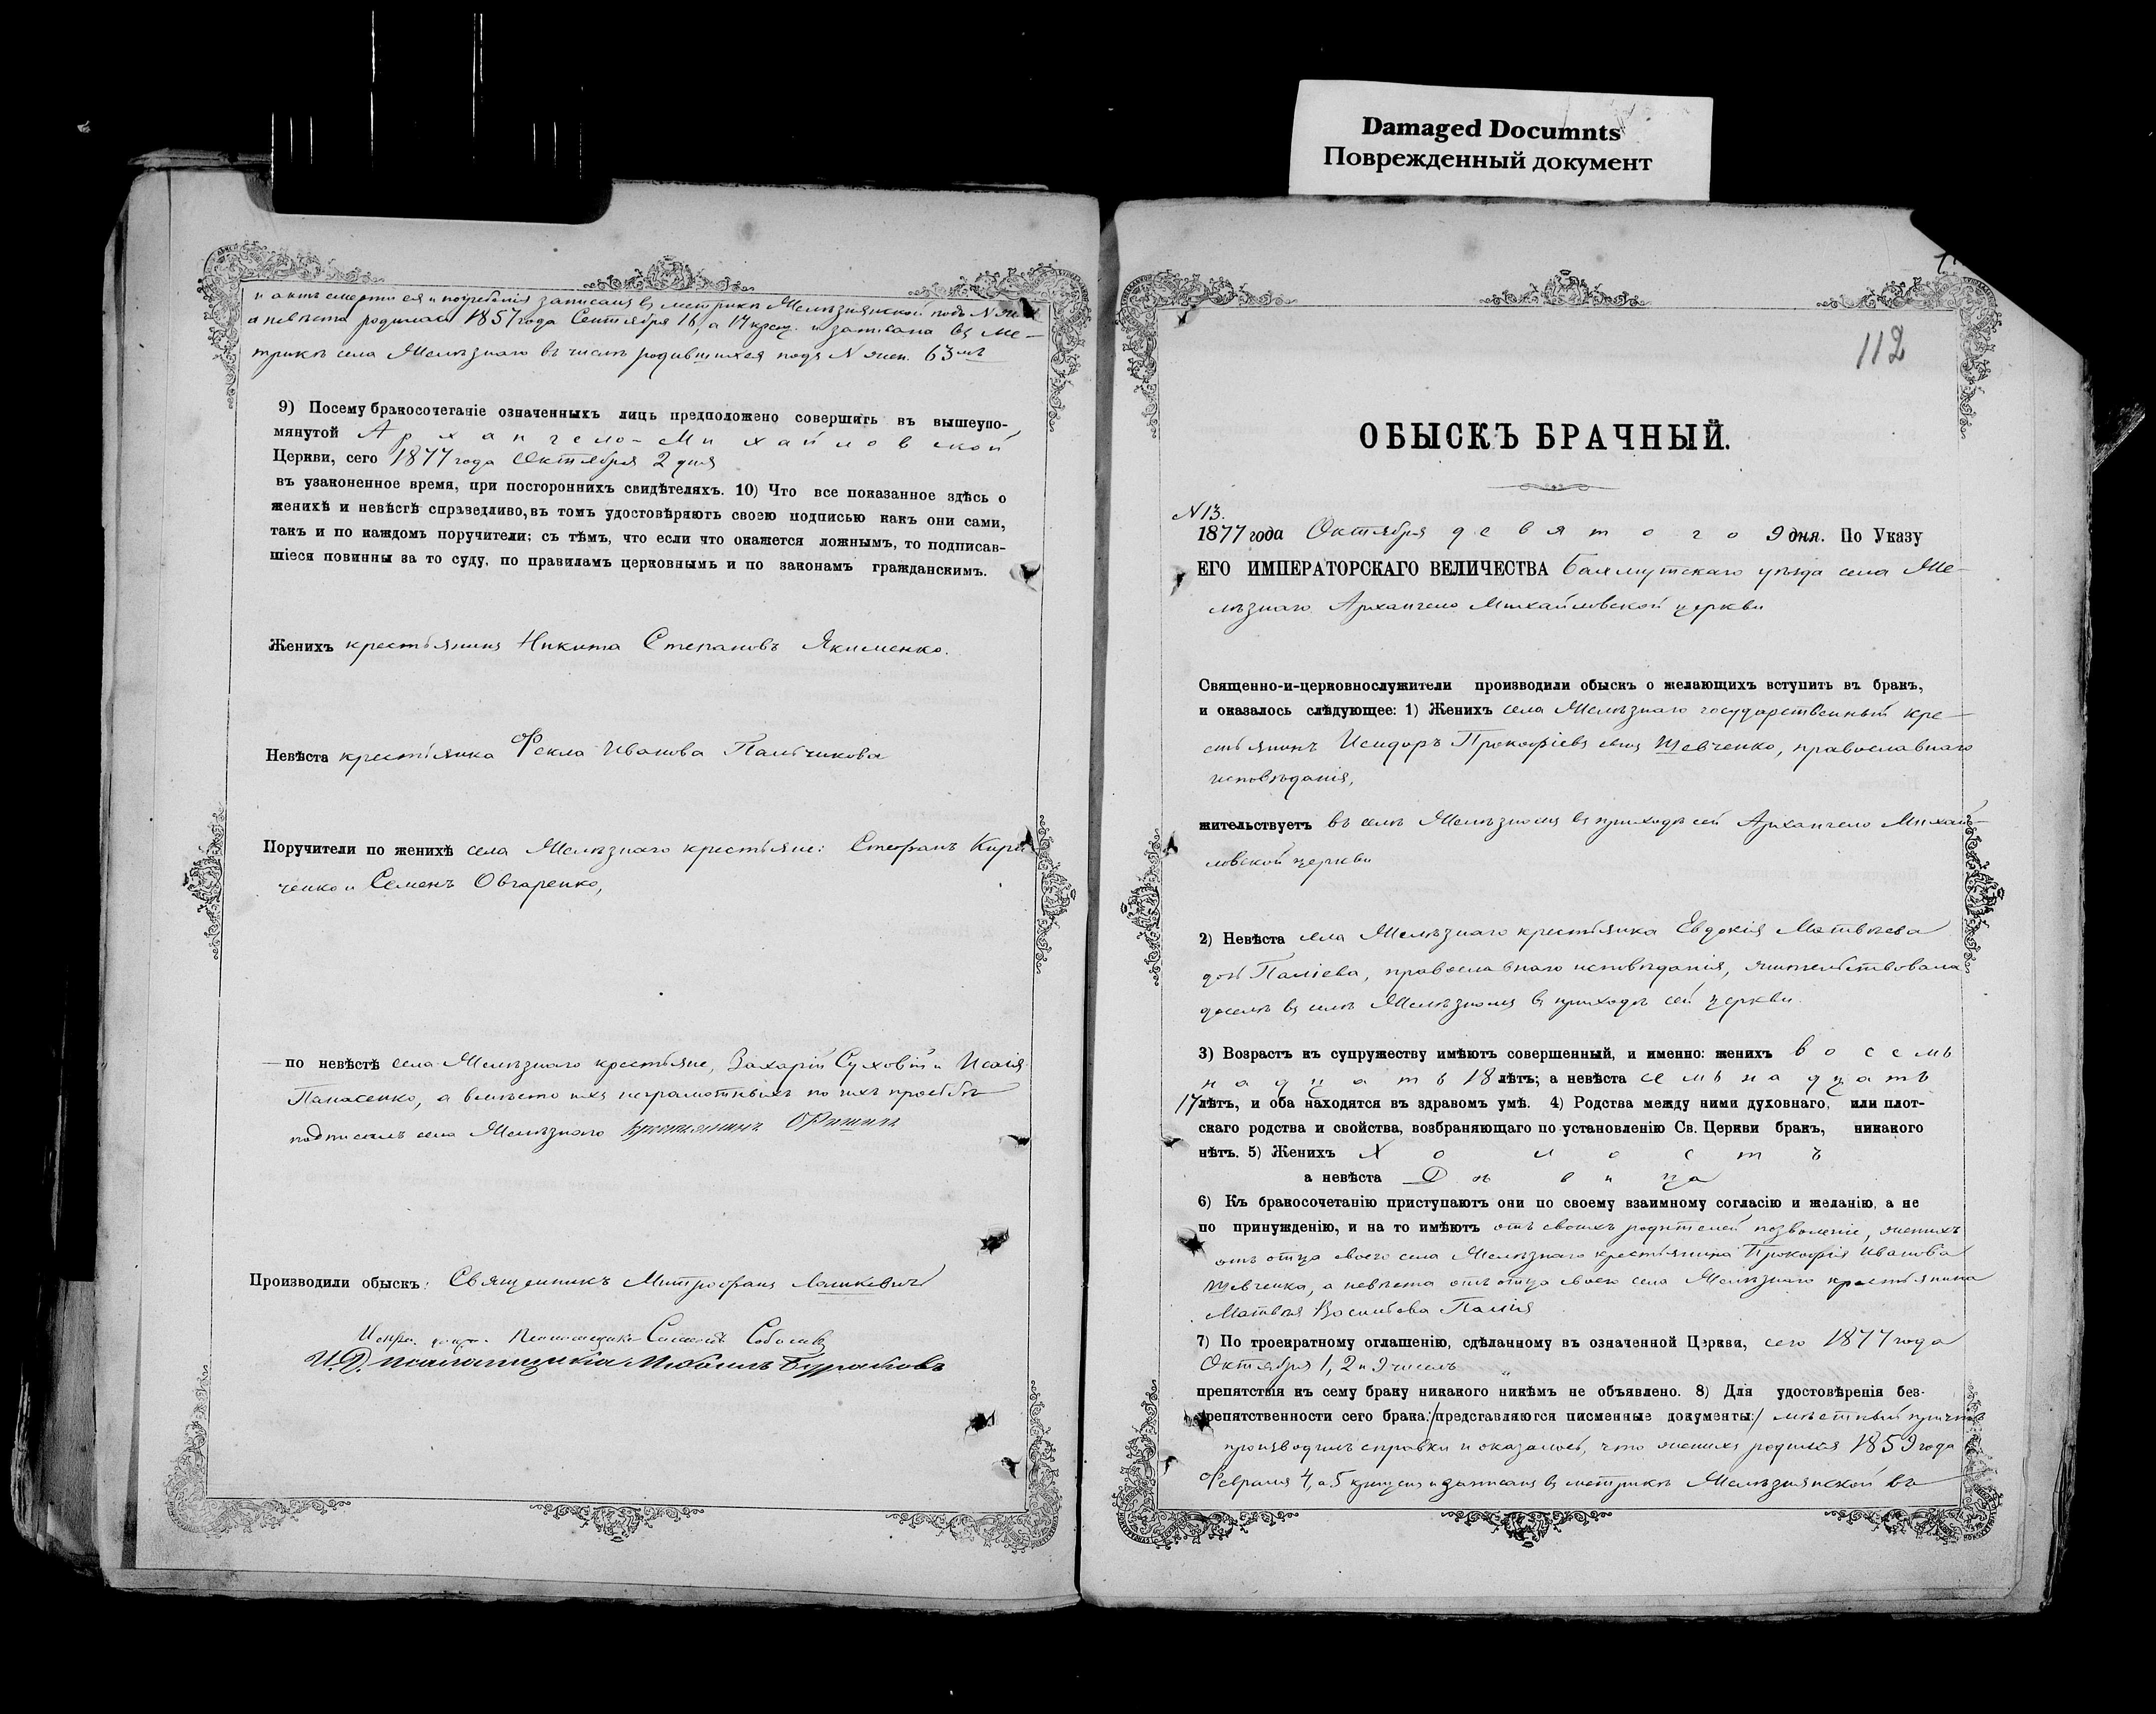 Damaged Documnts
Поврежденный документ
и актъ смерти ея и погребенія записанъ въ метрикѣ Желѣзнянской подъ N жен.
а невѣста родилась 1857 года Сентября 16, а 17 крещ. и записана въ ме-
трикѣ села Желѣзнаго въ числѣ родившихся подъ N жен. 63мъ
9) Посему бракосочетаніе означенныхъ лицъ предположено совершить въ вышеупо-
мянутой Архангело-Михайловской
Церкви, сего 1877 года Октября 2 дня
въ узаконенное время, при постороннихъ свидѣтеляхъ. 10) Что все показанное здѣсь о
женихѣ и невѣстѣ справедливо, въ томъ удостовѣряютъ своею подписью какъ они сами,
такъ и по каждомъ поручители; съ тѣмъ, что если что окажется ложнымъ, то подписав-
шіеся повинны за то суду, по правиламъ церковнымъ и по законамъ гражданскимъ.
Женихъ крестьянинъ Никита Степановъ Якименко.
Невѣста крестьянка Фекла Иванова Пальчикова
Поручители по женихѣ села Желѣзнаго крестьяне: Стефанъ Кири-
ченко и Семенъ Овчаренко,
— по невѣстѣ села Желѣзнаго крестьяне, Захарій Суховій и Исаія
Панасенко, а вмѣсто ихъ неграмотныхъ по ихъ прозьбѣ
подписалъ села Желѣзнаго крестьянинъ
Производили обыскъ: Священникъ Митрофанъ Лашкевичъ
Испр. долж. Псаломщика Соболевъ
И. Д. псаломщика Михаилъ Бураковъ
112
ОБЫСКЪ БРАЧНЫЙ.
N 13.
1877 года Октября девятого 9 дня. По Указу
ЕГО ИМПЕРАТОРСКАГО ВЕЛИЧЕСТВА Бахмутскаго уѣзда села Же-
лѣзнаго Архангело Михайловской церкви
Священно-и-церковнослужители производили обыскъ о желающихъ вступить въ бракъ,
и оказалось слѣдующее: 1) Женихъ села Желѣзнаго государственный кре-
стьянинъ Исидоръ Прокофіевъ сынъ Шевченко, православнаго
исповѣданія,
жительствуетъ въ селѣ Желѣзномъ въ приходѣ сей Архангело Михай-
ловской церкви
2) Невѣста села Желѣзнаго крестьянка Евдокія Матвѣева
дочь Паліева, православнаго исповѣданія, жительствовала
доселѣ въ селѣ Желѣзномъ въ приходѣ сей церкви.
3) Возрастъ къ супружеству имѣютъ совершенный, и именно: женихъ восемь
надцать 18 лѣтъ; а невѣста семьнадцать
17 лѣтъ, и оба находятся въ здравомъ умѣ. 4) Родства между ними духовнаго, или плот-
скаго родства и свойства, возбраняющаго по установленію Св. Церкви бракъ, никакого
нѣтъ. 5) Женихъ Холостъ
а невѣста Дѣвица
6) Къ бракосочетанію приступаютъ они по своему взаимному согласію и желанію, а не
по принужденію, и на то имѣютъ отъ своихъ родителей позволеніе, женихъ
отъ отца своего села Желѣзнаго крестьянина Прокофія Иванова
Шевченка, а невѣста отъ отца своего села Желѣзнаго крестьянина
Матвѣя Васильева Палія
7) По троекратному оглашенію, сдѣланному въ означенной Церкви, сего 1877 года
Октября 1, 2 и 9 числъ
препятствія къ сему браку никакого никѣмъ не объявлено. 8) Для удостовѣренія без-
препятственности сего брака: /представляются писменные документы:/ мѣстный причтъ
производилъ справки и оказалось, что женихъ родился 1859 года
Февраля 4, а 5 крещенъ и записанъ въ метрикѣ Желѣзнянской въ